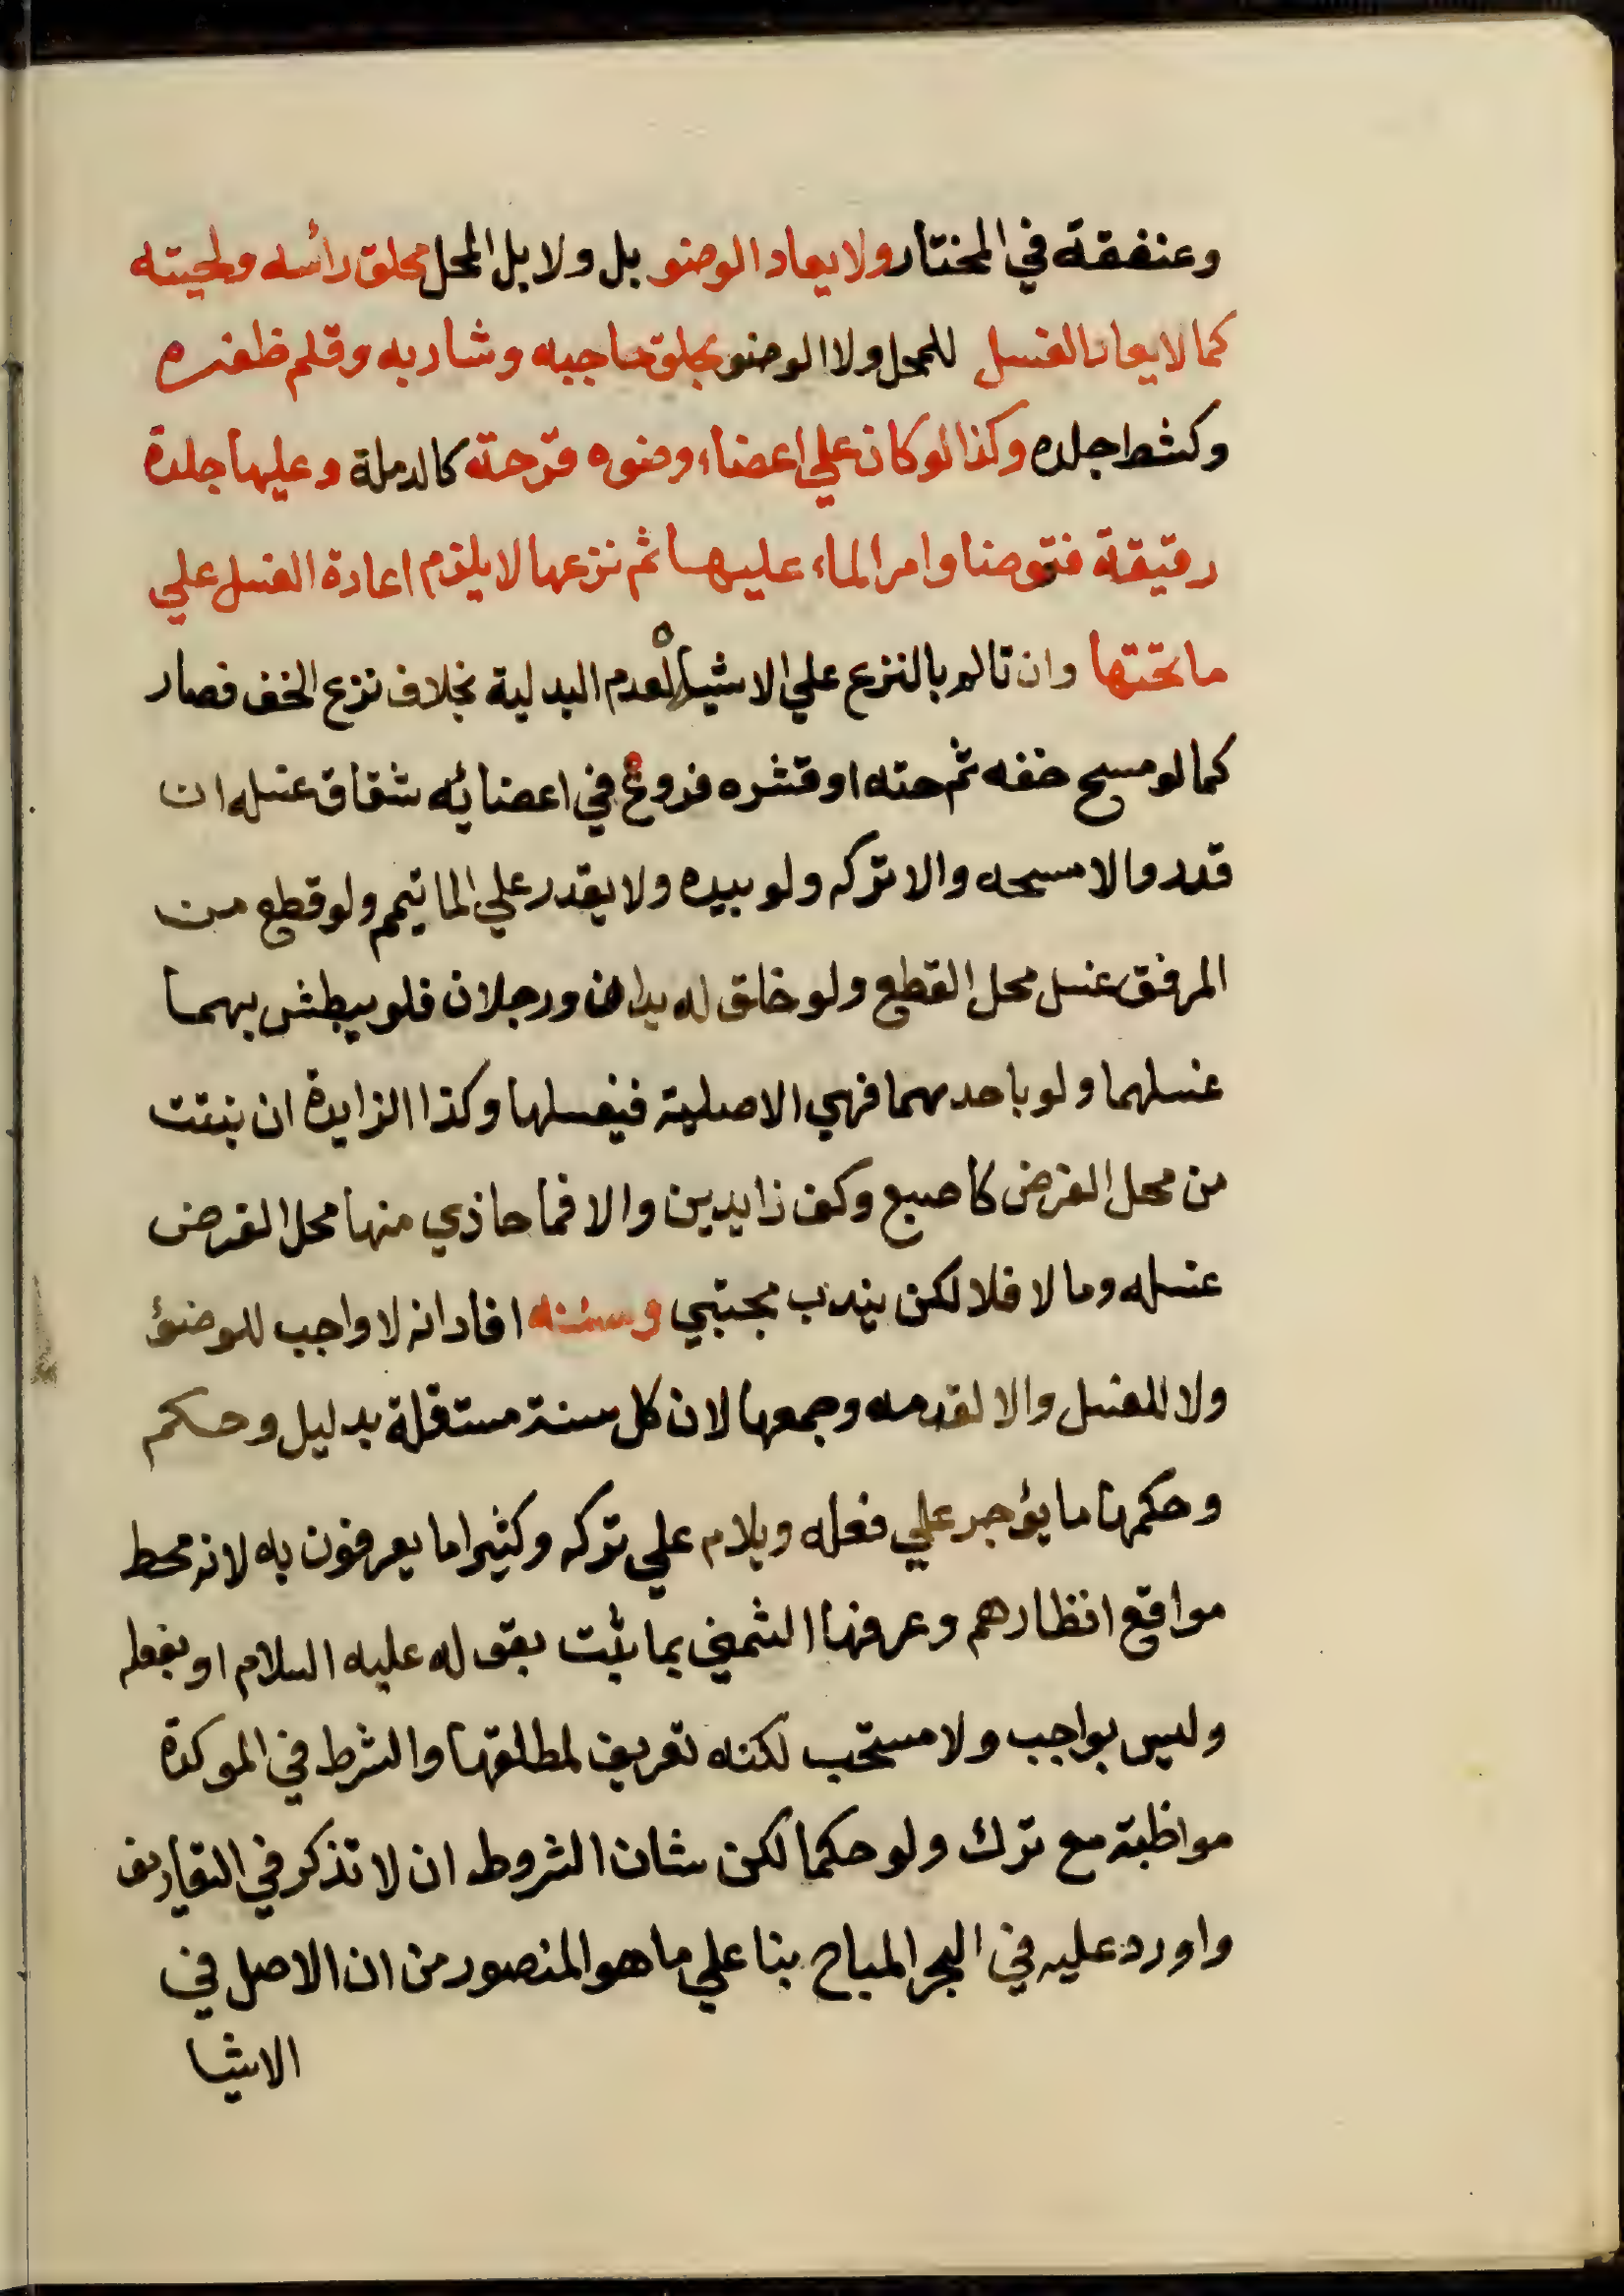 وعنفقة في المختار ولا يعاد الوضو بل ولا بل المحل بحلق رأسه ولحيته
كما لا يعاد الغسل للمحل ولا الوضو بحلق حاجبه وشاربه وقلم ظفره
وكشط جلده وكذا لو كان علي اعضاء وضوه قرحته كالدملة وعليها جلدة
رقيقة فتوضا وامر الماء عليها ثم نزعها لا يلزم اعادة الغسل علي
ما تحتها وان تالم بالنزع علي الاشبه لعدم البدلية بخلاف نزع الخف فصار
كما لو مسح خفه ثم حته او قشره فروع في اعضائه شقاق غسله ان
قدر والا مسحه والا تركه ولو بيده ولا يقدر علي الما تيمم ولو قطع من
المرفق غسل محل القطع ولو خلق له يدان ورجلان فلو يبطش بهما
غسلهما ولو باحدهما فهي الاصلية فيغسلها وكذا الزايدة ان نبتت
من محل الفرض كاصبع وكف زايدين والا فما حاذي منها محل الفرض
غسله وما لا فلا لكن يندب مجتبي وسننه افاد انه لا واجب للوضوٴ
ولا للغسل والا لقدمه وجمعها لان كل سنة مستقلة بدليل وحكم
وحكمها ما يؤجر علي فعله ويلام علي تركه وكثيرا ما يعرفون به لانه محط
مواقع انظارهم وعرفها الشمني بما ثبت بقوله عليه السلام او بفعله
وليس بواجب ولا مستحب لكنه تعريف لمطلقها والشرط في الموكدة
مواظبة مع ترك ولو حكما لكن شان الشروط ان لا تذكر في التعاريف
واورد عليه في البحر المباح بنا علي ما هو المنصور من ان الاصل في
الاشيا